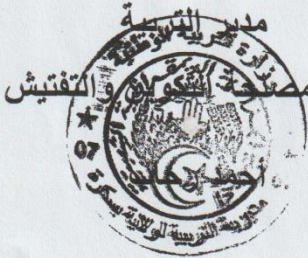 مدير التربية
مصلحة التكوين والتفتيش
وزارة التربية الوطنية
07
مديرية التربية لولاية بسكرة